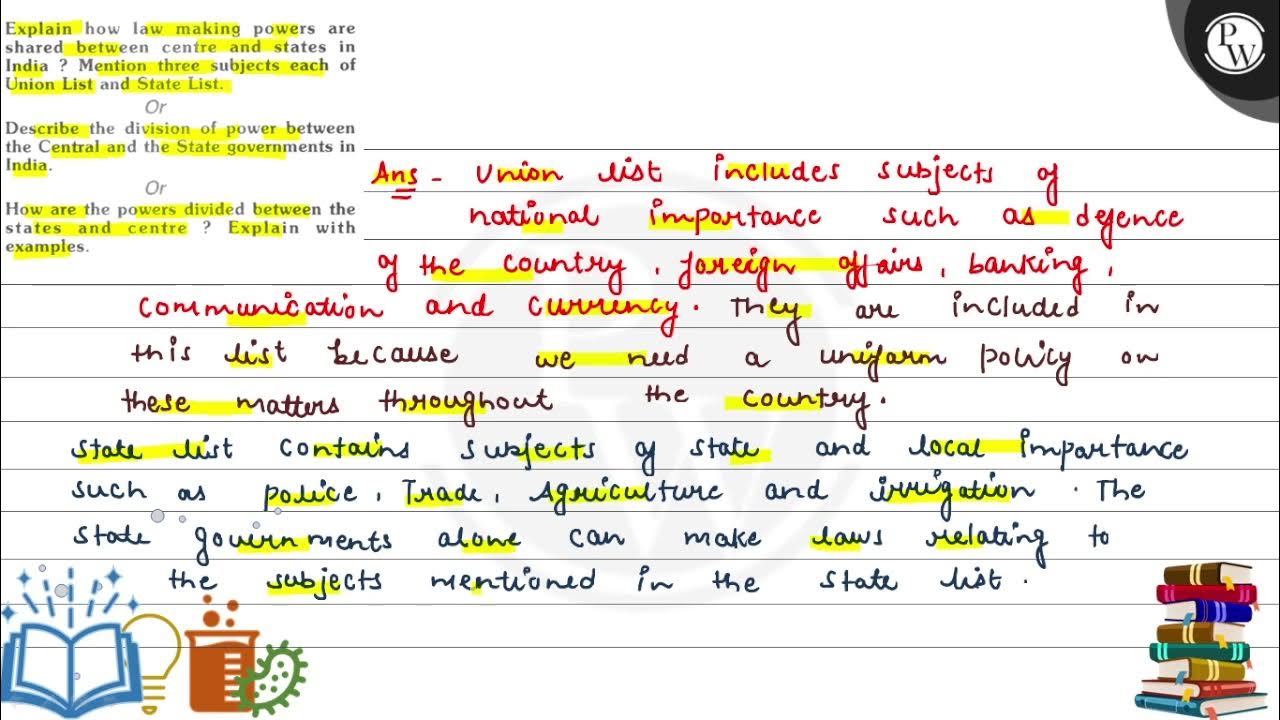 Explain how law making powers are
shared between centre and states in
India ? Mention three subjects each of
Union List and State List.
Or
Describe the division of power between
the Central and the State governments in
India.
Or
How are the powers divided between the
states and centre ? Explain with
examples.
PW
Ans - Union list includes subjects of
national importance such as defence
of the country, foreign affairs, banking,
communication and currency. They are included in
this list because we need a uniform policy on
these matters throughout the country.
State list contains subjects of state and local importance
such as police, Trade, Agriculture and irrigation. The
state governments alone can make laws relating to
the subjects mentioned in the state list.